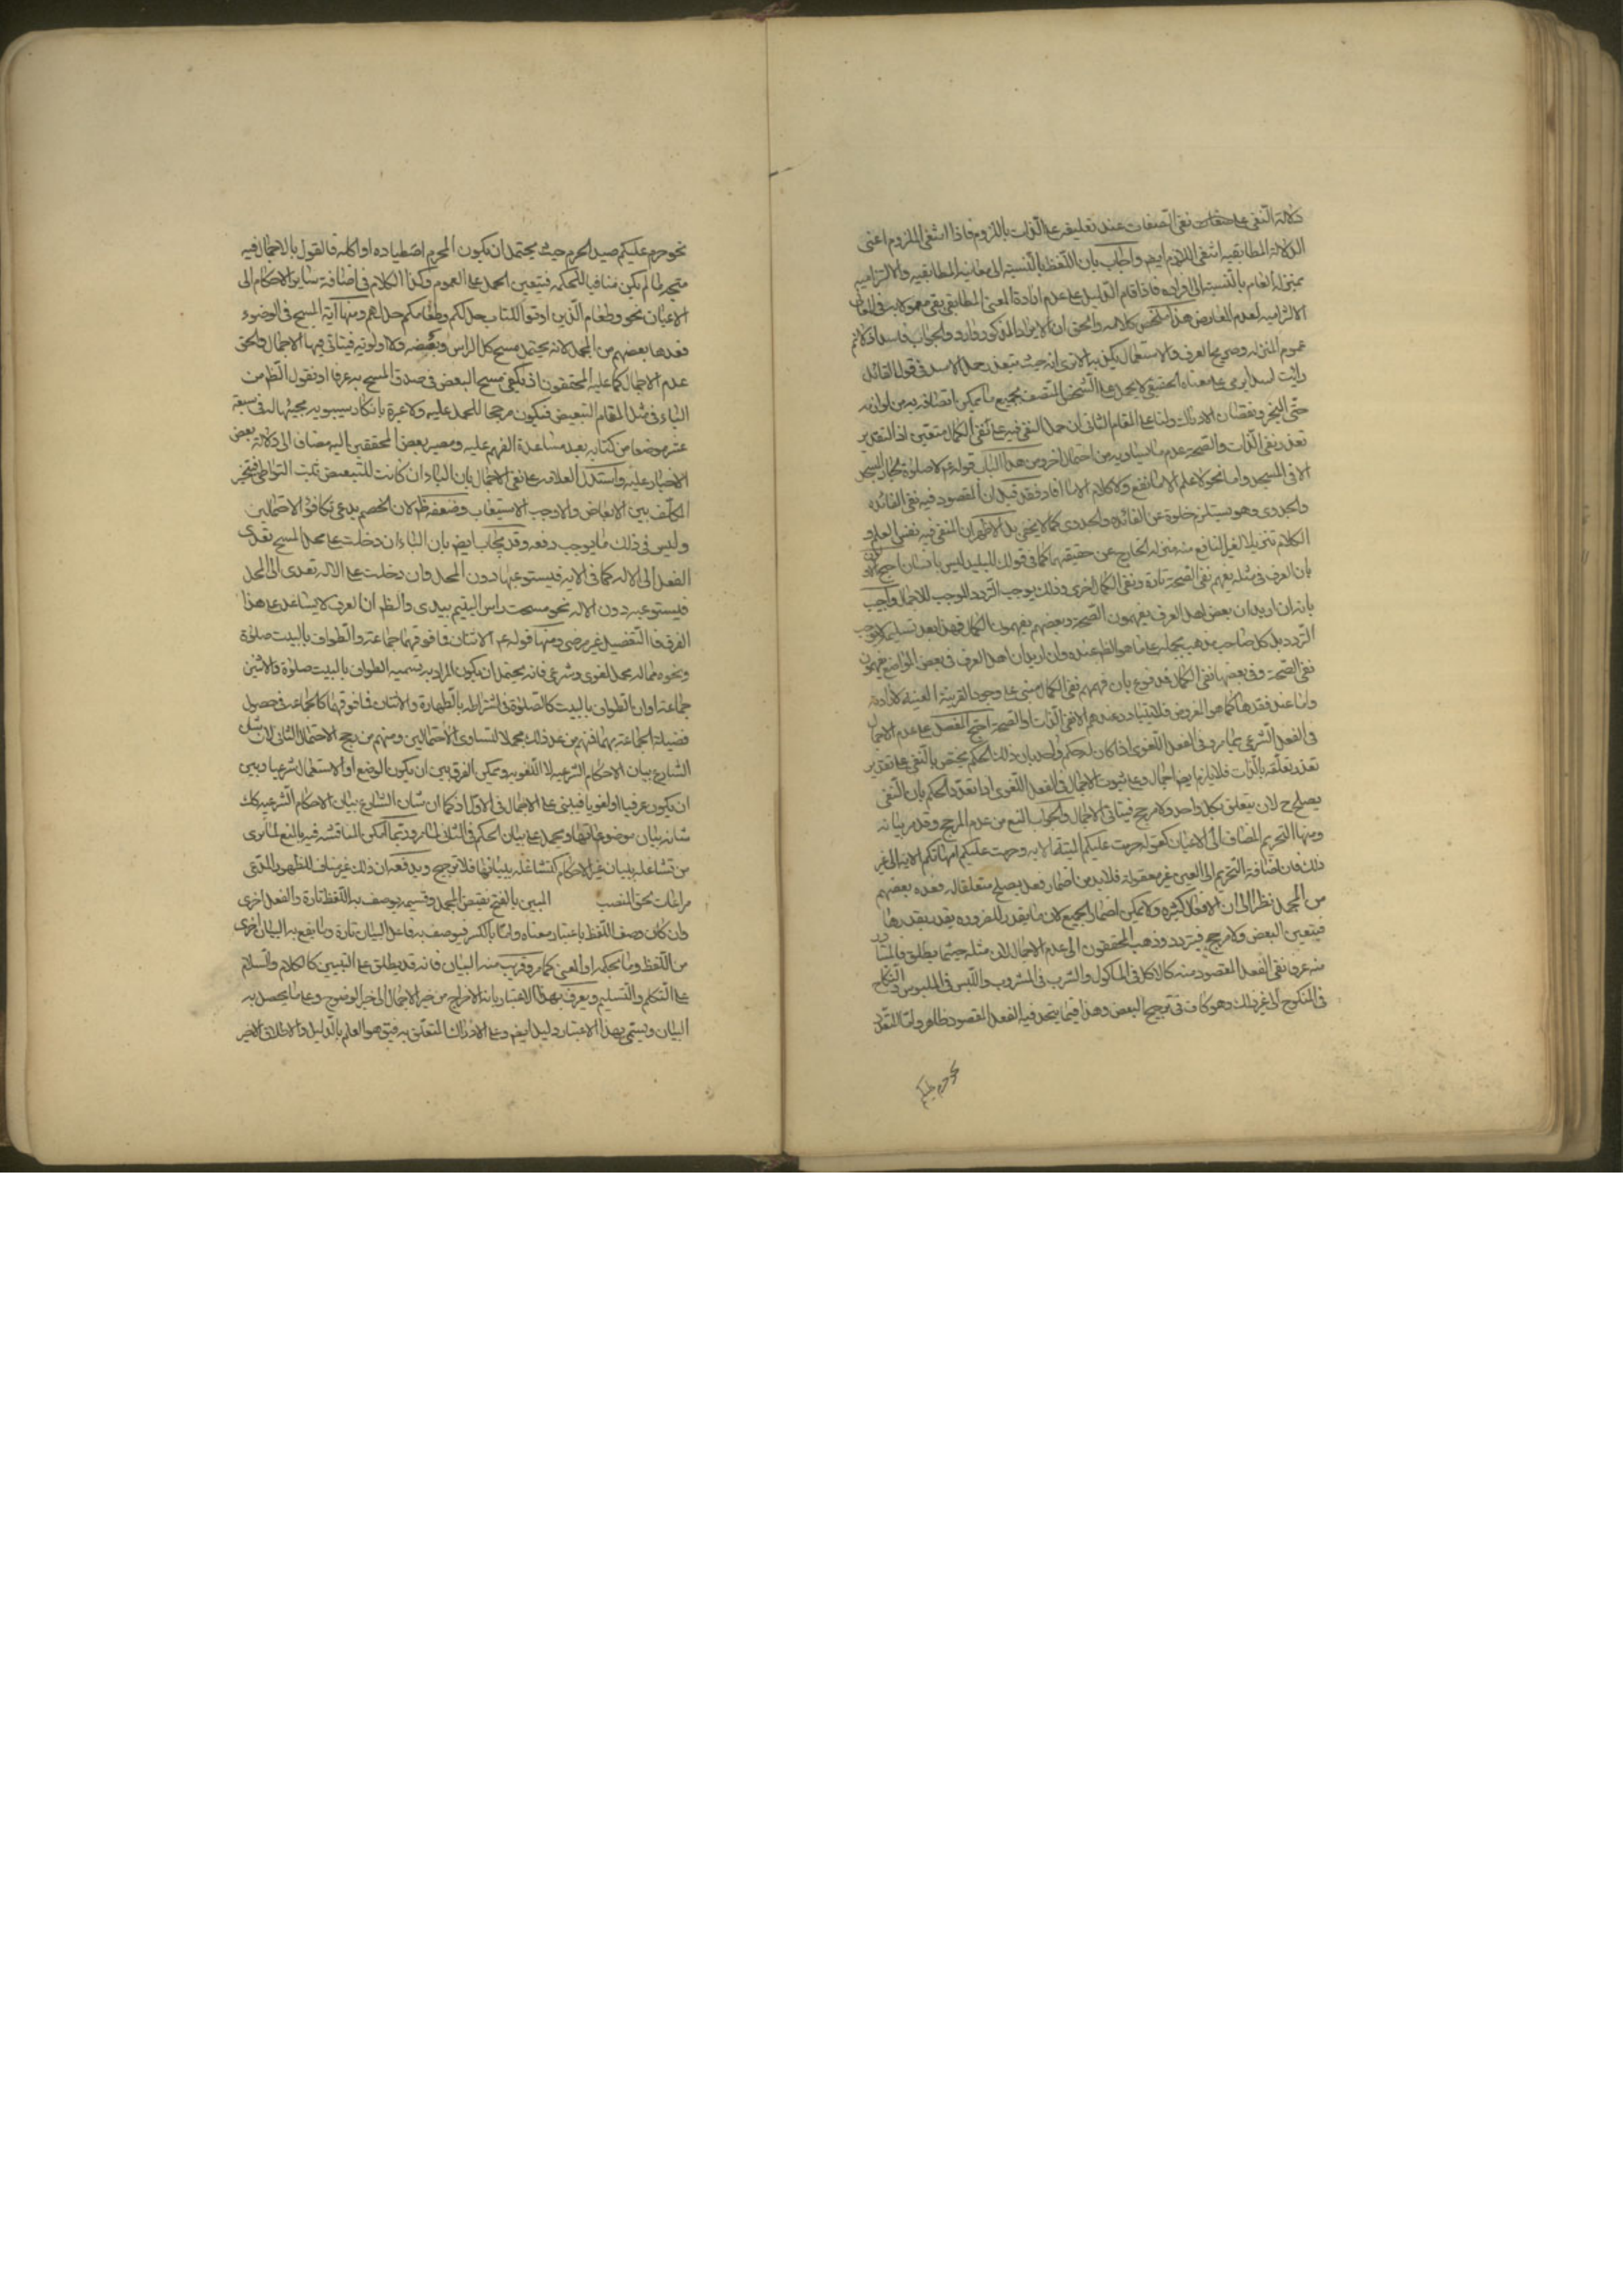 دلالة النفي على نفي الصفات عند تعليقه على الذات باللزوم فاذا انتفى الملزوم اعنى
الدلالة المطابقيه انتفى اللازم ايضم واجاب بان اللفظ بالنسبة الى معانيه المطابقيه والالتزاميه
بمنزلة العام بالنسبة الى افراده فاذا قام الدليل على عدم ارادة المعنى المطابقى بقى معمولا به فى المعانى
الالتزاميه لعدم المعارض هذا ملخص كلامه والحق ان الايراد المذكور وارد والجواب فاسد
عموم المنزله وصريح العرف والاستعمال يكذبه الا ترى انه حيث يتعذر حمل الاسد فى قول القائل
رايت اسدا يرمى على معناه الحقيقى لا يحمل على الشخص المتصف بجميع ما يمكن اتصافه به من لوازمه
حتى البخر ونقصان الادراك ولنا على المقام الثانى ان حمل النفى فيه على نفى الكمال متعين اذ التقدير
تعذر نفى الذات والصحة وعدم ما يساويه من احتمال اخر ومن هذا الباب قوله عم لا صلوة لجار المسجد
الا فى المسجد واما نحو لا علم الا ما نفع ولا كلام الا ما افاد فقد قيل ان المقصود فيه نفى الفائدة
والجدوى وهو يستلزم خلوه عن الفائده والجدوى كما لا يخفى بل الاظهر ان المنفى فيه نفس العلم و
الكلام تنزيلا لغير النافع منه منزلة الخارج عن حقيقتهما كما فى قولك للبليد ليس بانسان احتج
بان العرف فى مثله يفهم نفى الصحة تارة ونفى الكمال اخرى وذلك يوجب التردد الموجب للاجمال واجيب
بانه ان اريد ان بعض اهل العرف يفهمون الصحة وبعضهم يفهمون الكمال فهذا بعد تسليمه لا يوجب
التردد بل كل صاحب مذهب يحمله على ما هو الظم عنده وان اريد ان اهل العرف فى بعض المواضع يفهمون
نفى الصحة وفى بعضها نفى الكمال فمدفوع بان فهمهم نفى الكمال مبنى على وجود القرينة المعينه لارادته
واما عند فقدها كما هو المفروض فلا يتبادر عندهم الا نفى الذات او الصحة احتج المفصل على عدم الاجمال
فى الفعل الشرعى بما مر وفى الفعل اللغوى اذا كان له حكم واحد بان ذلك الحكم يختص بالنفى على تقدير
تعذر تعلقه بالذات فلا يلزم ايضا اجمال وعلى ثبوت الاجمال فى الفعل اللغوى اذا تعدد الحكم بان النفى
يصلح ح لان يتعلق بكل واحد ولا مرجح فيتاتى الاجمال والجواب المنع من عدم المرجح وقد مر بيانه
ومنها التحريم المضاف الى الاعيان كقوله حرمت عليكم الميتة الايه وحرمت عليكم امهاتكم الايه الى غير
ذلك فان اضافة التحريم الى العين غير معقولة فلا بد من اضمار فعل يصلح متعلقا له فعده بعضهم
من المجمل نظرا الى ان الافعال كثيره ولا يمكن اضمار الجميع لان ما يقدر للضرورة يقدر بقدرها
فيتعين البعض ولا مرجح فيتردد وذهب المحققون الى عدم الاجمال لان مثله حيثما يطلق فالمتبادر
منه عرفا نفى الفعل المقصود منه كالاكل فى الماكول والشرب فى المشروب واللبس فى الملبوس والنكاح
فى المنكوح الى غير ذلك وهو كاف فى ترجيح البعض وهذا فيما يتحد فيه الفعل المقصود ظاهر واما المتعدد
نحو حرم عليكم
نحو حرم عليكم صيد الحرم حيث يحتمل ان يكون المحرم اصطياده او اكله فالقول بالاجمال فيه
متجه ما لم يكن منافيا للحكمه فيتعين الحمل على العموم وكذا الكلام فى اضافة ساير الاحكام الى
الاعيان نحو وطعام الذين اوتوا الكتاب حل لكم وطعامكم حل لهم ومنها آية المسح فى الوضوء
فعدها بعضهم من المجمل لانه يحتمل مسح كل الراس وبعضه ولا اولويه فيتاتى فيها الاجمال والحق
عدم الاجمال كما عليه المحققون اذ يكفى مسح البعض فى صدق المسح به عرفا او نقول الظم من
الباء فى مثل المقام التبعيض فيكون مرجحا للحمل عليه ولا عبرة بانكار سيبويه مجيئها له فى سبعة
عشر موضعا من كتابه بعد مساعدة الفهم عليه ومصير بعض المحققين اليه مضافا الى دلالة بعض
الاخبار عليه واستدل العلامه على نفى الاجمال بان الباء ان كانت للتبعيض ثبت التواطى فتخير
المكلف بين الابعاض والا وجب الاستيعاب وضعفه ظم لان الخصم يدعى تكافؤ الاحتمالين
وليس فى ذلك ما يوجب دفعه وقد يجاب ايضم بان الباء ان دخلت على محل المسح تعدى
الفعل الى الاله كما فى الايه فيستوعبها دون المحل وان دخلت على الاله تعدى الى المحل
فيستوعبه دون الاله نحو مسحت راس اليتيم بيدى والظم ان العرف لا يساعد على هذا
الفرق فالتفصيل غير مرضى ومنها قوله عم الاثنان فما فوقهما جماعة والطواف بالبيت صلوة
ونحوه مما له محمل لغوى وشرعى فانه يحتمل ان يكون المراد به تسميه الطواف بالبيت صلوة والاثنين
جماعة او ان الطواف بالبيت كالصلوة فى اشتراطه بالطهارة والاثنان فما فوقهما كالجماعة فى حصول
فضيلة الجماعة بهما فمنهم من عد ذلك مجملا لتساوى الاحتمالين ومنهم من رجح الاحتمال الثانى لان شان
الشارع بيان الاحكام الشرعيه لا اللغويه ويمكن الفرق بين ان يكون الوضع او الاستعمال شرعيا وبين
ان يكون عرفيا او لغويا فيبنى على الاجمال فى الاول اذ كما ان شان الشارع بيان الاحكام الشرعيه كك
شانه بيان موضوعاتها ويحمل على بيان الحكم فى الثانى لما مر وربما امكن المناقشه فيه بالمنع لما نرى
من تشاغله ببيان غير الاحكام كتشاغله ببيانها فلا ترجيح ويدفعه ان ذلك غير مناف للظهور المدعى
مراعات لحق المنصب المبين بالفتح نقيض المجمل وقسيمه يوصف به اللفظ تارة والفعل اخرى
وان كان وصف اللفظ باعتبار معناه واما بالكسر فيوصف به فاعل البيان تارة وما يقع به البيان اخرى
من اللفظ وما بحكمه او المعنى كما مر وقريب منه البيان فانه قد يطلق على التبيين كالكلام والسلام
على التكلم والتسليم ويعرف بهذا الاعتبار بانه الاخراج من حيز الاجمال الى حيز الوضوح وعلى ما يحصل به
البيان ويسمى بهذا الاعتبار دليلا ايضم وعلى الادراك المتعلق به فيق هو العلم بالدليل والاطلاق الاخير